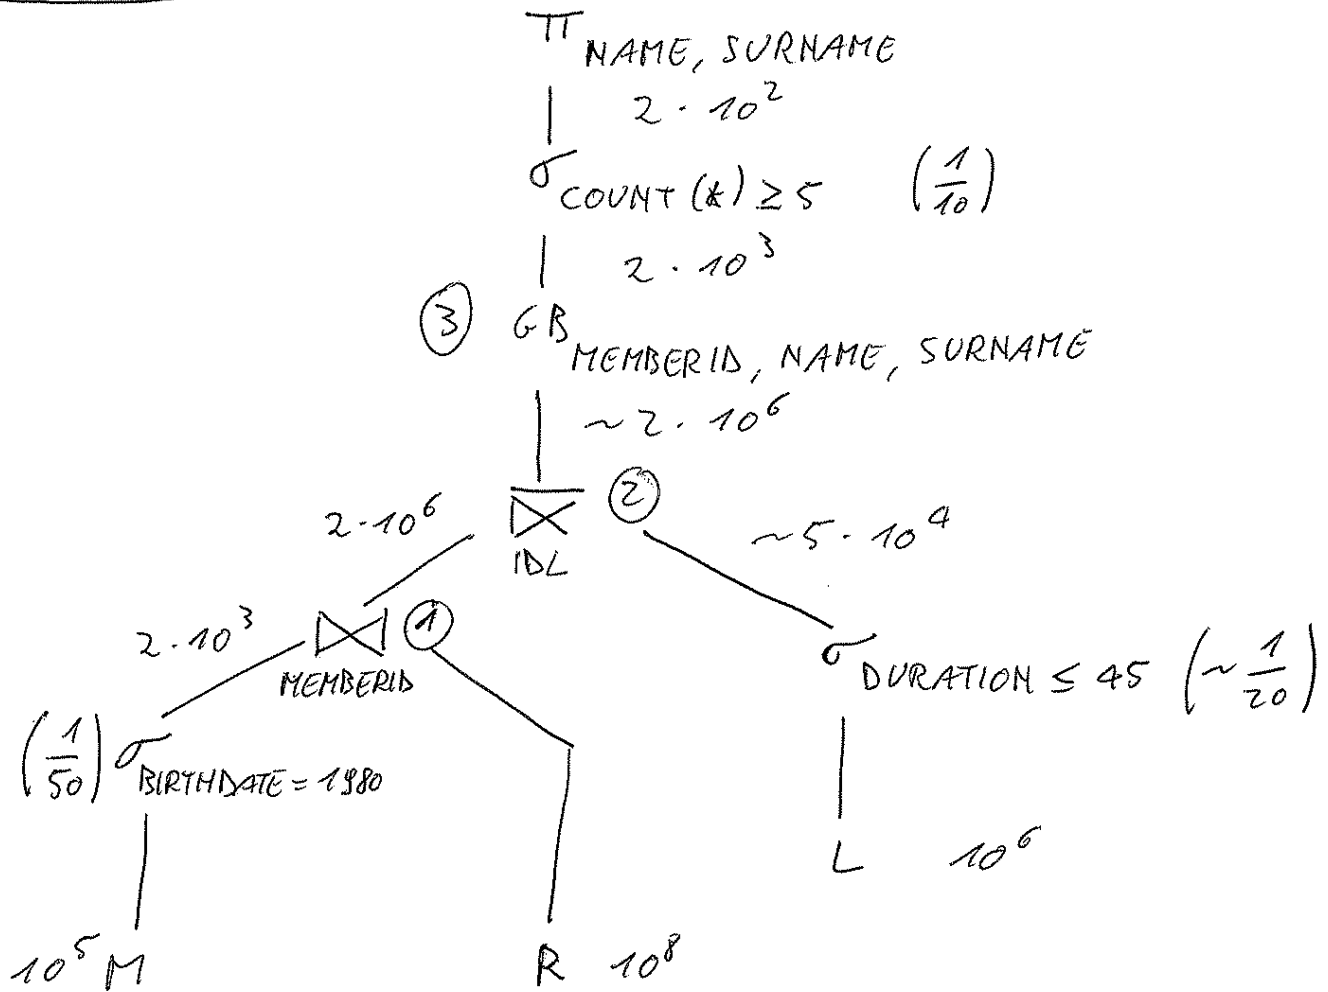 π NAME, SURNAME
2 · 10²
σ COUNT (*) ≥ 5 (1/10)
2 · 10³
③ GB MEMBERID, NAME, SURNAME
~2 · 10⁶
② ⋈ IDL
2·10⁶
~5 · 10⁴
2·10³
⋈ ① MEMBERID
σ DURATION ≤ 45 (~ 1/20)
(1/50) σ BIRTHDATE = 1980
L 10⁶
10⁵ M
R 10⁸